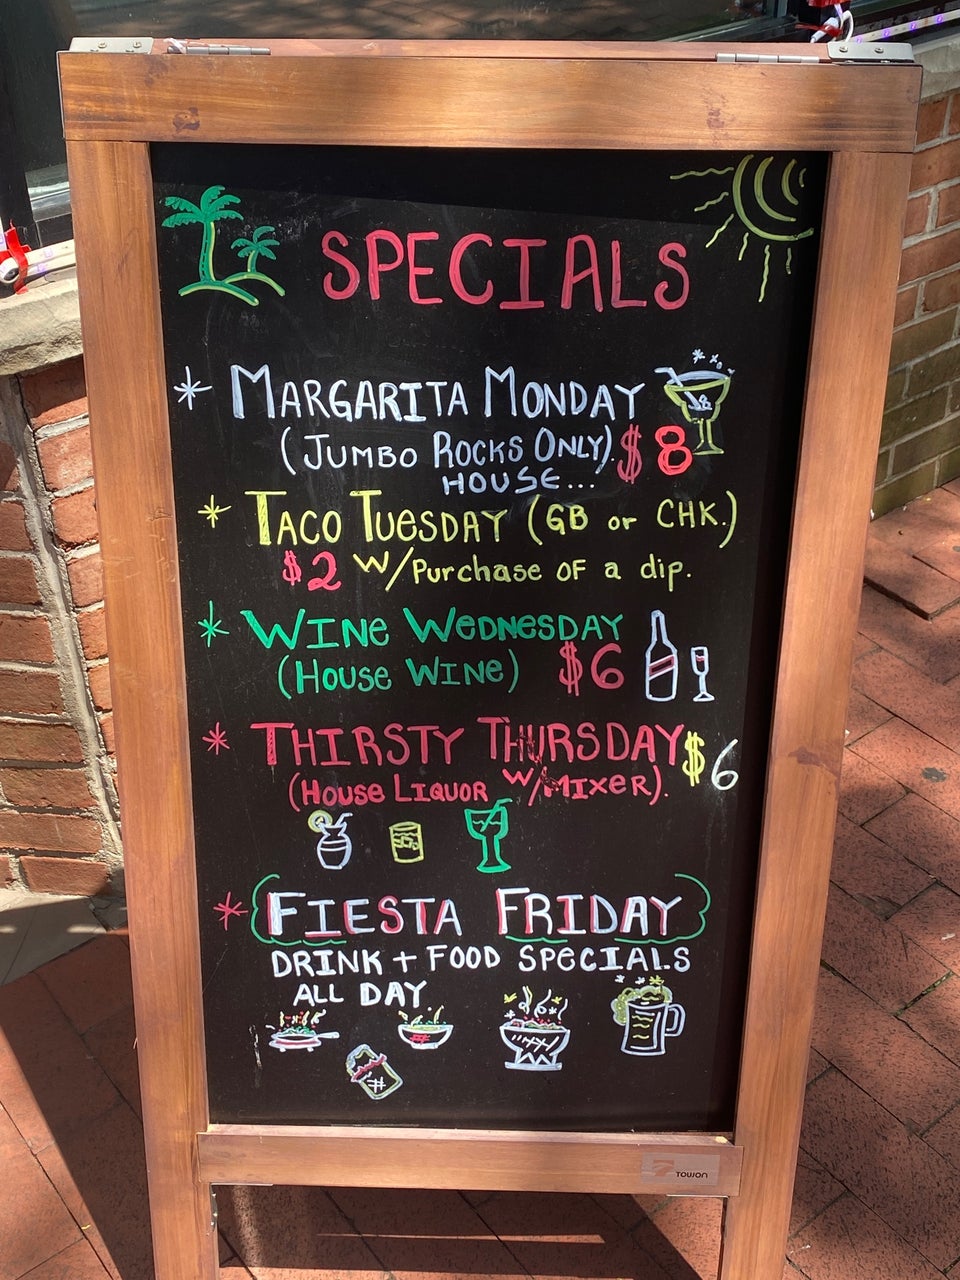 SPECIALS
* MARGARITA MONDAY
(JUMBO ROCKS ONLY). $8
HOUSE...
* TACO TUESDAY (GB or CHK.)
$2 W/Purchase OF a dip.
* WINE WEDNESDAY
(HOUSE WINE) $6
* THIRSTY THURSDAY $6
(HOUSE LIQUOR W/MIXER).
* FIESTA FRIDAY
DRINK + FOOD SPECIALS
ALL DAY
TOWON